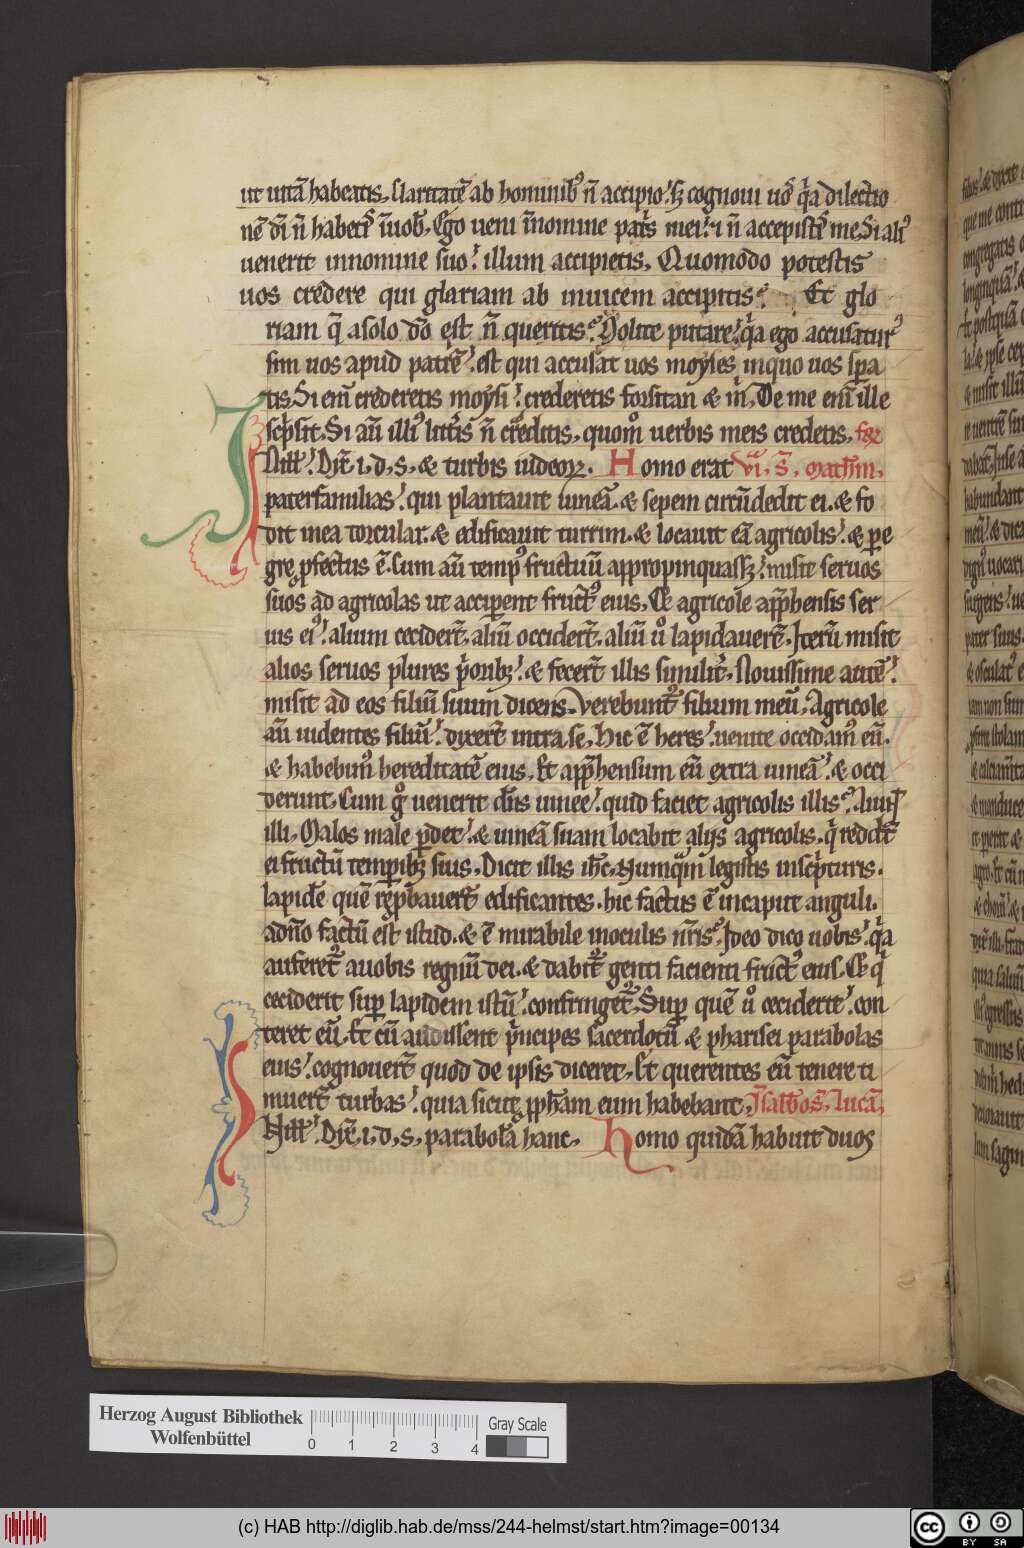 ut uitā habeatis. Claritatē ab hominibꝰ n̄ accipio. sꝫ cognoui uos q̇a dilectio
nē di n̄ habetis ī uob. Ego ueni ī nomine pat̄s mei. ⁊ n̄ accepistis me. Si aliꝰ
uenerit in nomine suo. illum accipietis. Quomodo potestis
uos credere qui gloriam ab inuicem accipitis. Et glo
riam q̄ a solo dō est n̄ queritis. Nolite putare. q̇a ego accusaturꝰ
sim uos apud patrē. est qui accusat uos moyses in quo uos spa
tis. Si enī crederetis moysi. crederetis forsitan & m̄. De me enī ille
scpsit. Si aū illiꝰ litt̄is n̄ creditis. quom̊ uerbis meis credetis.
In ill. Dix̄. i. d. s. & turbis iudeoꝝ. Homo erat vi. s̄. Mathm.
paterfamilias. qui plantauit uineā. & sepem circūdedit ei. & fo
dit in ea torcular. & edificauit turrim. & locauit eā agricolis. & pe
gre pfectus ē. Cum aū tempꝰ fructuū appropinquassꝫ. misit seruos
suos ad agricolas ut acciperent fructꝰ eius. Et agricole apphensis ser
uis eiꝰ. alium cecidert̄. aliū occidert̄. aliū ů lapidauert̄. Iterū misit
alios seruos plures p̄oribꝫ. & fecert̄ illis similit̄. Nouissime autē.
misit ad eos filiū suum dicens. Verebunt᷑ filium meū. Agricole
aū uidentes filiū. dixert̄ intra se. Hic ē heres. uenite occidamꝰ eū.
& habebimꝰ hereditatē eius. Et apphensum eū extra uineā. & occi
derunt. Cum g̊ uenerit dn̄s uinee. quid faciet agricolis illis. Aiunt
illi. Malos male pdet. & uineā suam locabit alijs agricolis. q̇ reddt̄
ei fructū temporibꝫ suis. Dicit illis ih̄c. Numq̄m legistis in scpturis.
lapidē quē repbauert̄ edificantes. hic factus ē in caput anguli.
a dn̄o factū est istud. & ē mirabile in oculis nr̄is. Ideo dico uobis. q̇a
auferet᷑ a uobis regnū dei. & dabit᷑ genti facienti fructꝰ eius. Et q̇
ceciderit sup lapidem istū. confringet᷑. Sup quē ů ceciderit. con
teret eū. Et cū audissent p̄ncipes sacerdotū & pharisei parabolas
eius. cognouert̄ quod de ipsis diceret. Et querentes eū tenere ti
muert̄ turbas. quia sicut pph̄am eum habebant. Sabbo s̄. Lucā.
In ill. Dix̄. i. d. s. parabolā hanc. Homo quidā habuit duos
Herzog August Bibliothek
Wolfenbüttel
0 1 2 3 4
Gray Scale
(c) HAB http://diglib.hab.de/mss/244-helmst/start.htm?image=00134
cc BY SA